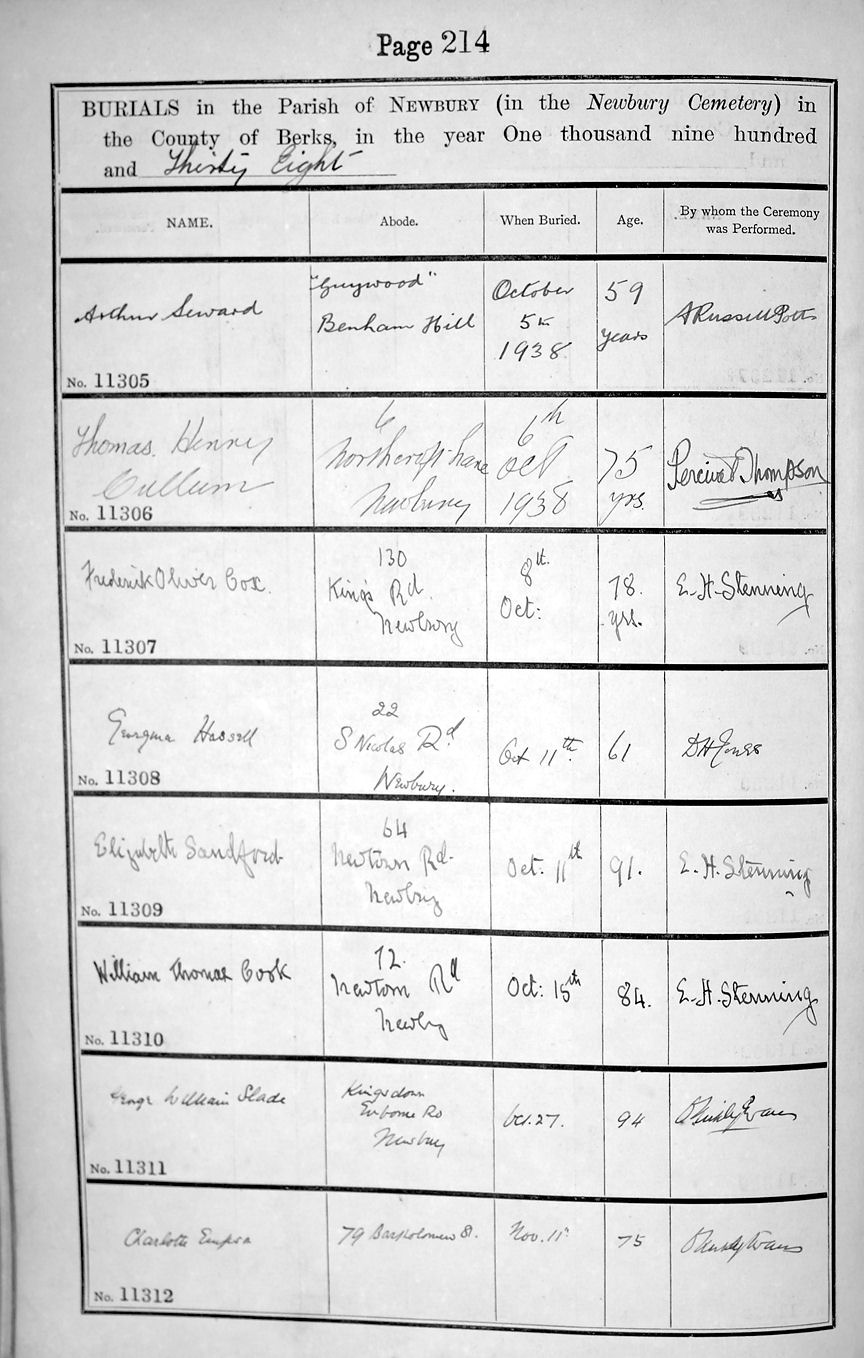 Page 214
BURIALS in the Parish of NEWBURY (in the Newbury Cemetery) in
the County of Berks, in the year One thousand nine hundred
and Thirty Eight
NAME. Abode. When Buried. Age. By whom the Ceremony was Performed.
Arthur Seward
"Greywood"
Benham Hill
October
5th
1938
59
years
A Russell Potts
No. 11305
Thomas Henry
Cullum
6
Northcroft Lane
Newbury
6th
Oct
1938
75
yrs.
Percival Thompson
No. 11306
Frederick Oliver Cox.
130
King's Rd.
Newbury
8th.
Oct:
78.
yrs.
E. H. Stenning
No. 11307
Georgina Hassell
22
S Nicolas Rd
Newbury.
Oct 11th.
61
D H Jones
No. 11308
Elizabeth Sandford
64
Newtown Rd.
Newbury
Oct. 11th
91.
E. H. Stenning
No. 11309
William Thomas Cook
72.
Newtown Rd
Newby
Oct: 15th
84.
E. H. Stenning
No. 11310
George William Slade
Kingsdown
Enborne Rd
Newbury
Oct. 27.
94
Evans
No. 11311
Charlotte
79 Bartholomew St.
Nov. 11th
75
Evans
No. 11312